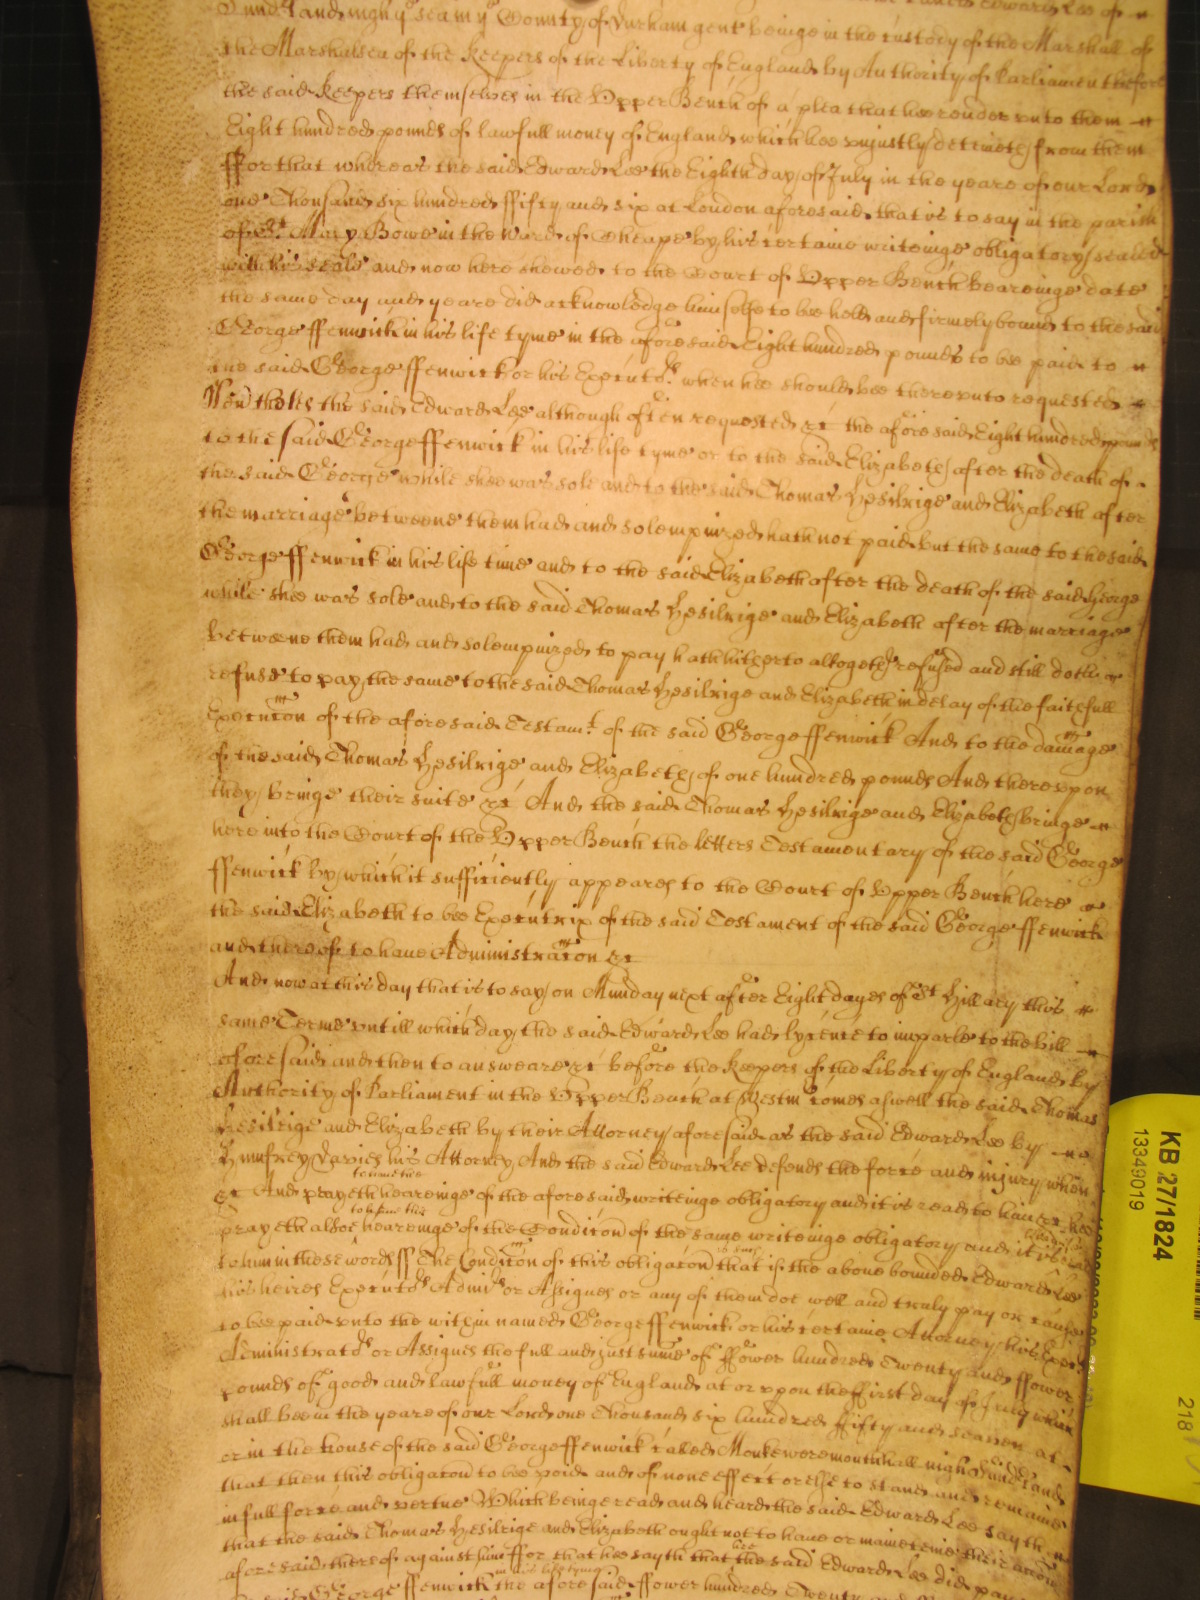 Sund'land nigh ye sea in ye County of Durham gent beinge in the custody of the Marshall of
the Marshalsea of the Keepers of the Liberty of England by Authority of Parliament before
the said Keepers themselves in the Upper Bench of a plea that hee render unto them
Eight hundred pounds of lawfull money of England which hee unjustly deteineth from them
ffor that whereas the said Edward Lee the Eighth day of July in the yeare of our Lord
one Thousand six hundred ffifty and six at London aforesaid that is to say in the parish
of St. Mary Bowe in the Ward of Cheape by his certaine writeinge obligatory sealed
with his seale and now here shewed to the Court of Upper Bench beareinge date
the same day and yeare did acknowledge himselfe to bee held and firmely bound to the said
George ffenwick in his life tyme in the aforesaid Eight hundred pounds to bee paid to
the said George ffenwick or his Executors when hee should bee thereunto requested
Nevertheles the said Edward Lee although often requested &c the aforesaid Eight hundred pounds
to the said George ffenwick in his life tyme or to the said Elizabeth after the death of
the said George while shee was sole and to the said Thomas Hesilrige and Elizabeth after
the marriage betweene them had and solempnized hath not paid but the same to the said
George ffenwick in his life time and to the said Elizabeth after the death of the said George
while shee was sole and to the said Thomas Hesilrige and Elizabeth after the marriage
betweene them had and solempnized to pay hath hitherto altogether refused and still doth
refuse to pay the same to the said Thomas Hesilrige and Elizabeth in delay of the faithfull
Execucon of the aforesaid Testamt. of the said George ffenwick And to the damage
of the said Thomas Hesilrige and Elizabeth of one hundred pounds And thereupon
they bringe their suite &c And the said Thomas Hesilrige and Elizabeth bringe
here into the Court of the Upper Bench the letters Testamentary of the said George
ffenwick by which it sufficiently appeares to the Court of Upper Bench here
the said Elizabeth to bee Executrix of the said Testament of the said George ffenwick
and thereof to have Administracon &c
And now at this day that is to say on Munday next after Eight dayes of St Hillary this
same Terme untill which day the said Edward Lee had lycence to imparle to the bill
aforesaid and then to answeare &c before the Keepers of the Liberty of England by
Authority of Parliament in the Upper Bench at Westm comes aswell the said Thomas
Hesilrige and Elizabeth by their Attorney aforesaid as the said Edward Lee by
Humfrey Davies his Attorney And the said Edward Lee defends the force and injury when
&c And prayeth heareinge of the aforesaid writeinge obligatory and it is read to him &c hee
prayeth alsoe heareinge of the Condicon of the same writeinge obligatory and it is
to him in these words ff The Condicon of this obligacon that if the above bounded Edward Lee
his heires Executors Admrs or Assignes or any of them doe well and truly pay or cause
to bee paid unto the within named George ffenwick or his certaine Attorney his Execrs
Administrators or Assignes the full and just summe of ffower hundred Twenty and ffower
pounds of good and lawfull money of England at or uppon the ffirst day of July which
shall bee in the yeare of our Lord one Thousand six hundred ffifty and seaven at
or in the house of the said George ffenwick called Monkewermouth hall nigh Sund'land
that then this obligacon to bee void and of none effect or else to stand and remaine
in full force and vertue Which beinge read and heard the said Edward Lee sayth
that the said Thomas Hesilrige and Elizabeth ought not to have or mainteine their accon
aforesaid thereof against him ffor that hee sayth that hee the said Edward Lee did pay
George ffenwick in his life tyme the aforesaid ffower hundred Twenty and
KB 27/1824
13349019
218